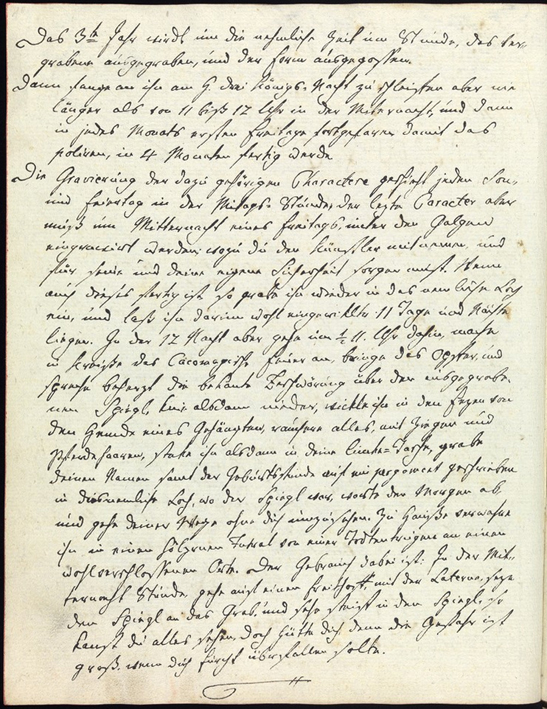 Das 3te Jahr wirdt um die nehmliche Zeit um Stunde, das ver-
grabene ausgegraben, und der form ausgegossen.
Dann fange an ihn am H. drei Königs-Nacht zu schleiffen aber nie
länger als von 11 biß 12 Uhr in der Mitternacht, und dann
in jedes Monats ersten Freitage fortgefaren damit das
poliren, in 4 Monaten fertig werde.
Die Gravierung der dazu gehörigen Charactere geschieht jeden Son-
und Feiertag in der Mitags-Stunde, der lezte Caracter aber
muß um Mitternacht eines Freitags, unter den Galgen
eingraviert werden: wozu du den Künstler mitnemen, und
für seine und deine eigene Sicherheit sorgen must. Wenn
auch dieses fertig ist so grabe ihn wieder in das nemliche Loch
ein, und laß ihn darinn wohl eingewiklter 11 Tage und Nächte
liegen. In der 12 Nacht aber gehe um ½ 11. Uhr dahin, mache
in Kreiße das Cacomagische feuer an, bringe das Opffer, und
spreche beherzt die bekante Beschwörung über den ausgegrabe-
nen Spiegl, knie alsdann nieder, wickle ihn in den Fezen von
den Hemde eines Gehängten, räuchere alles, mit Ziegen und
Pferdehaaren, steke ihn alsdann in deine linke-Tasche, grabe
deinen Namen samt der Geburtsstunde auf ein pargament geschrieben
in dasnemliche Loch, wo der Spiegl war, warte den Morgen ab
und gehe deiner Wege ohne dich umzusehen. Zu Hauße verwahre
ihn in einen hölzernen Futral von einer Todtentrugen an einen
wohl verschlossenen Orte. Der Gebrauch dabei ist: In der Mit-
ternacht Stunde gehe auf einen Freithoff, mit der Laterne, seze
den Spiegl an das Grab, und sehe steif in den Spiegl, so
kanst du alles sehen, doch hütte dich denn die Gefahr ist
groß wenn dich furcht überfallen solte.